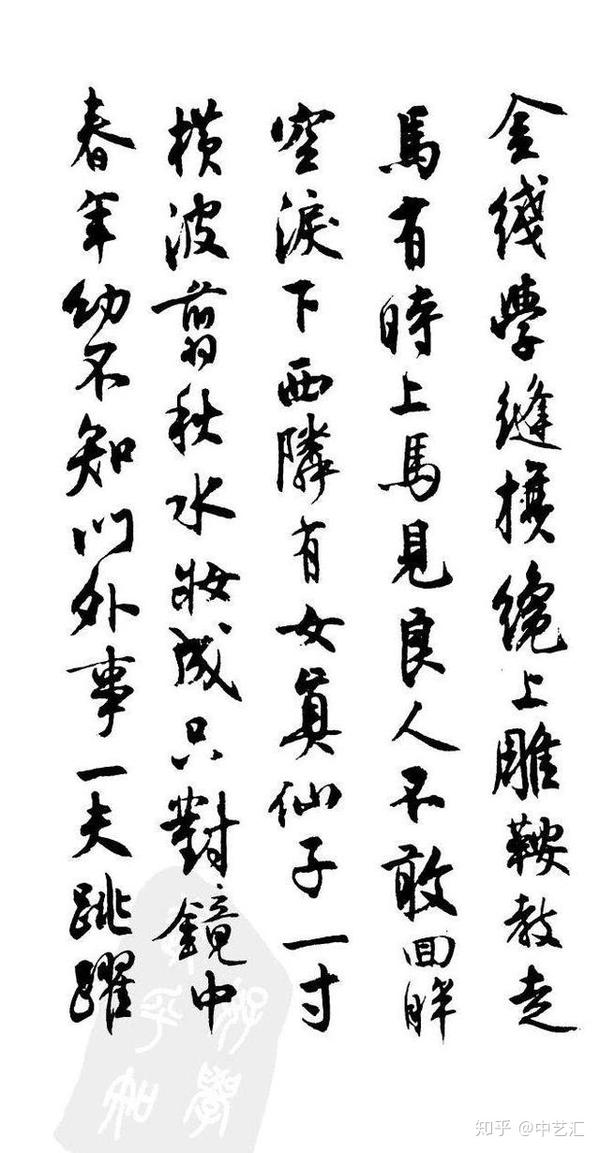 金綫學縫旗纔上雕鞍教走
馬有時上馬見良人不敢回眸
空淚下西隣有女真仙子一寸
横波翦秋水妝成只對鏡中
春年幼不知門外事一夫跳躍
知乎 @中艺汇